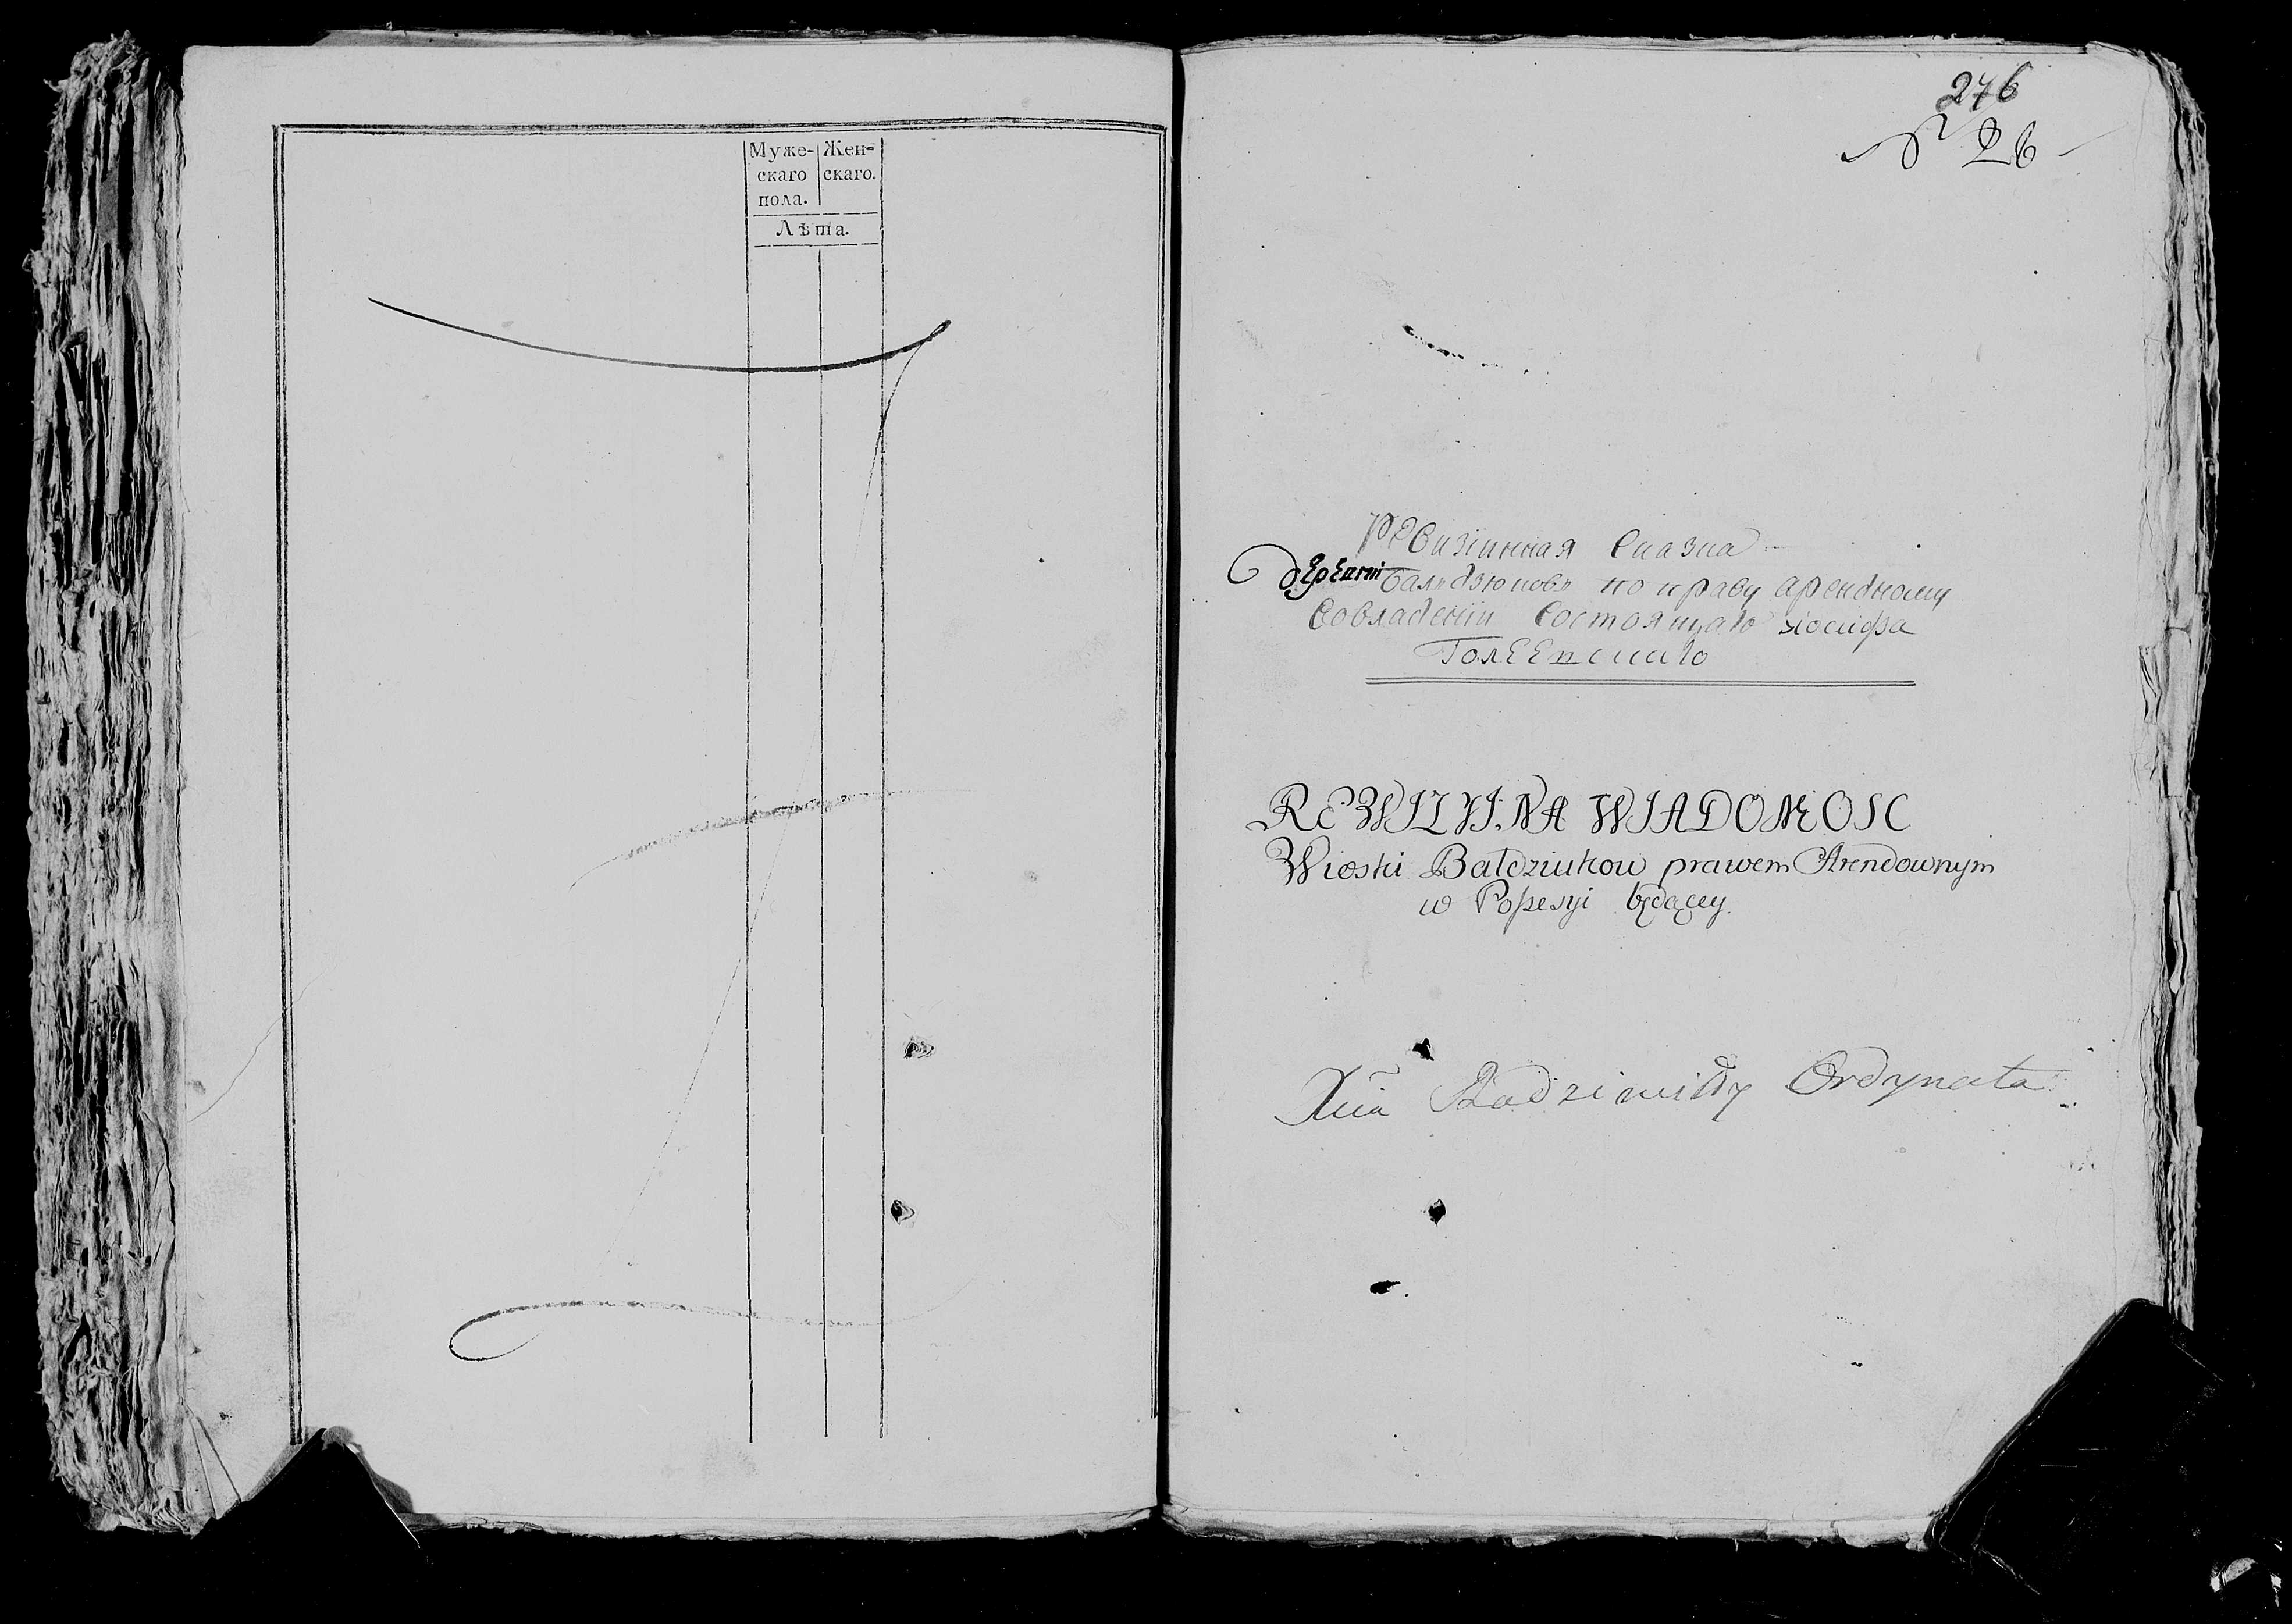 Муже-
скаго
пола.
Жен-
скаго.
Лѣта.
276
№ 26
Ревизинная Сказка
деревни Бальдзюковъ по праву арендному
Совладенiи Состоящаго Iосифа
REWIZYINA WIADOMOSC
Wioski Bałdziukow prawem Arendownym
w Possesyi będącey.
Xcia Radziwiłły Ordynata